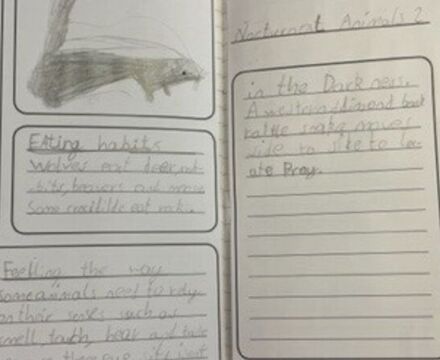 Eating habits
Wolves eat deer, rab-
bits, beavers and moose
Some crocidilde eat
Feelling the way
some animals need to rely
on their senses such as
smell, touch, hear and taste
Nocturnal Animals 2
in the Darkness.
A western diamond back
rattle snake moves
side to site to loc-
ate Prey.